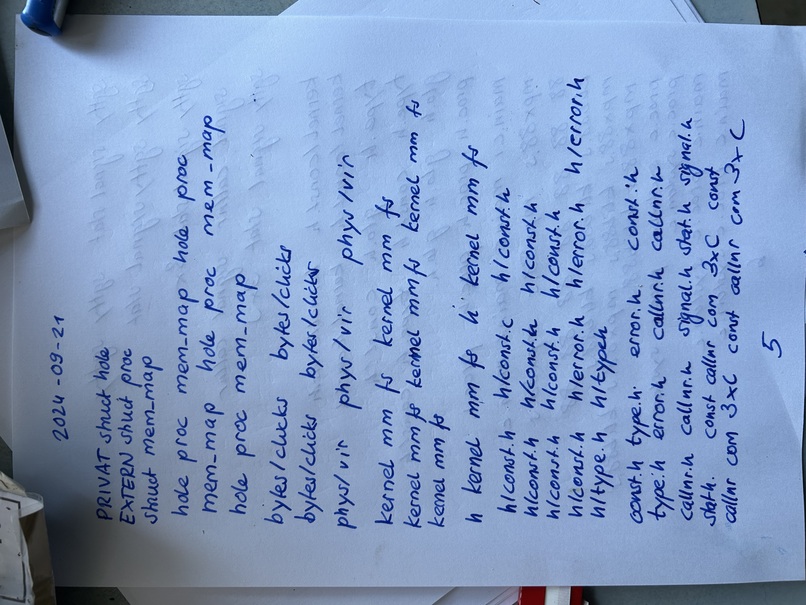 2024-09-21
PRIVAT struct hole
EXTERN struct proc
struct mem_map
hole proc mem_map hole proc
mem_map hole proc mem_map
hole proc mem_map
bytes/clicks bytes/clicks
bytes/clicks bytes/clicks
phys/vir phys/vir phys/vir
kernel mm fs kernel mm fs
kernel mm fs kernel mm fs kernel mm fs
kernel mm fs
h kernel mm fs h kernel mm fs
h/const.h h/const.c h/const.h
h/const.h h/const.h h/const.h
h/const.h h/const.h h/const.h
h/const.h h/error.h h/error.h h/error.h
h/type.h h/typeh
const.h type.h. error.h. const.h
type.h error.h callnr.h callnr.h
callnr.h callnr.h signal.h stat.h signal.h
stath. const callnr com 3xC const
callnr com 3xC const callnr com 3xC
5